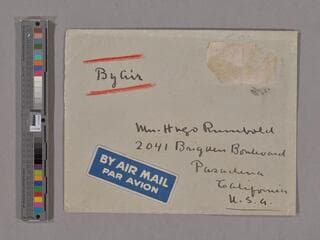 By Air
Mrs. Hugo Rumbold
2041 Brigden Boulevard
Pasadena
California
U.S.A.
BY AIR MAIL
PAR AVION